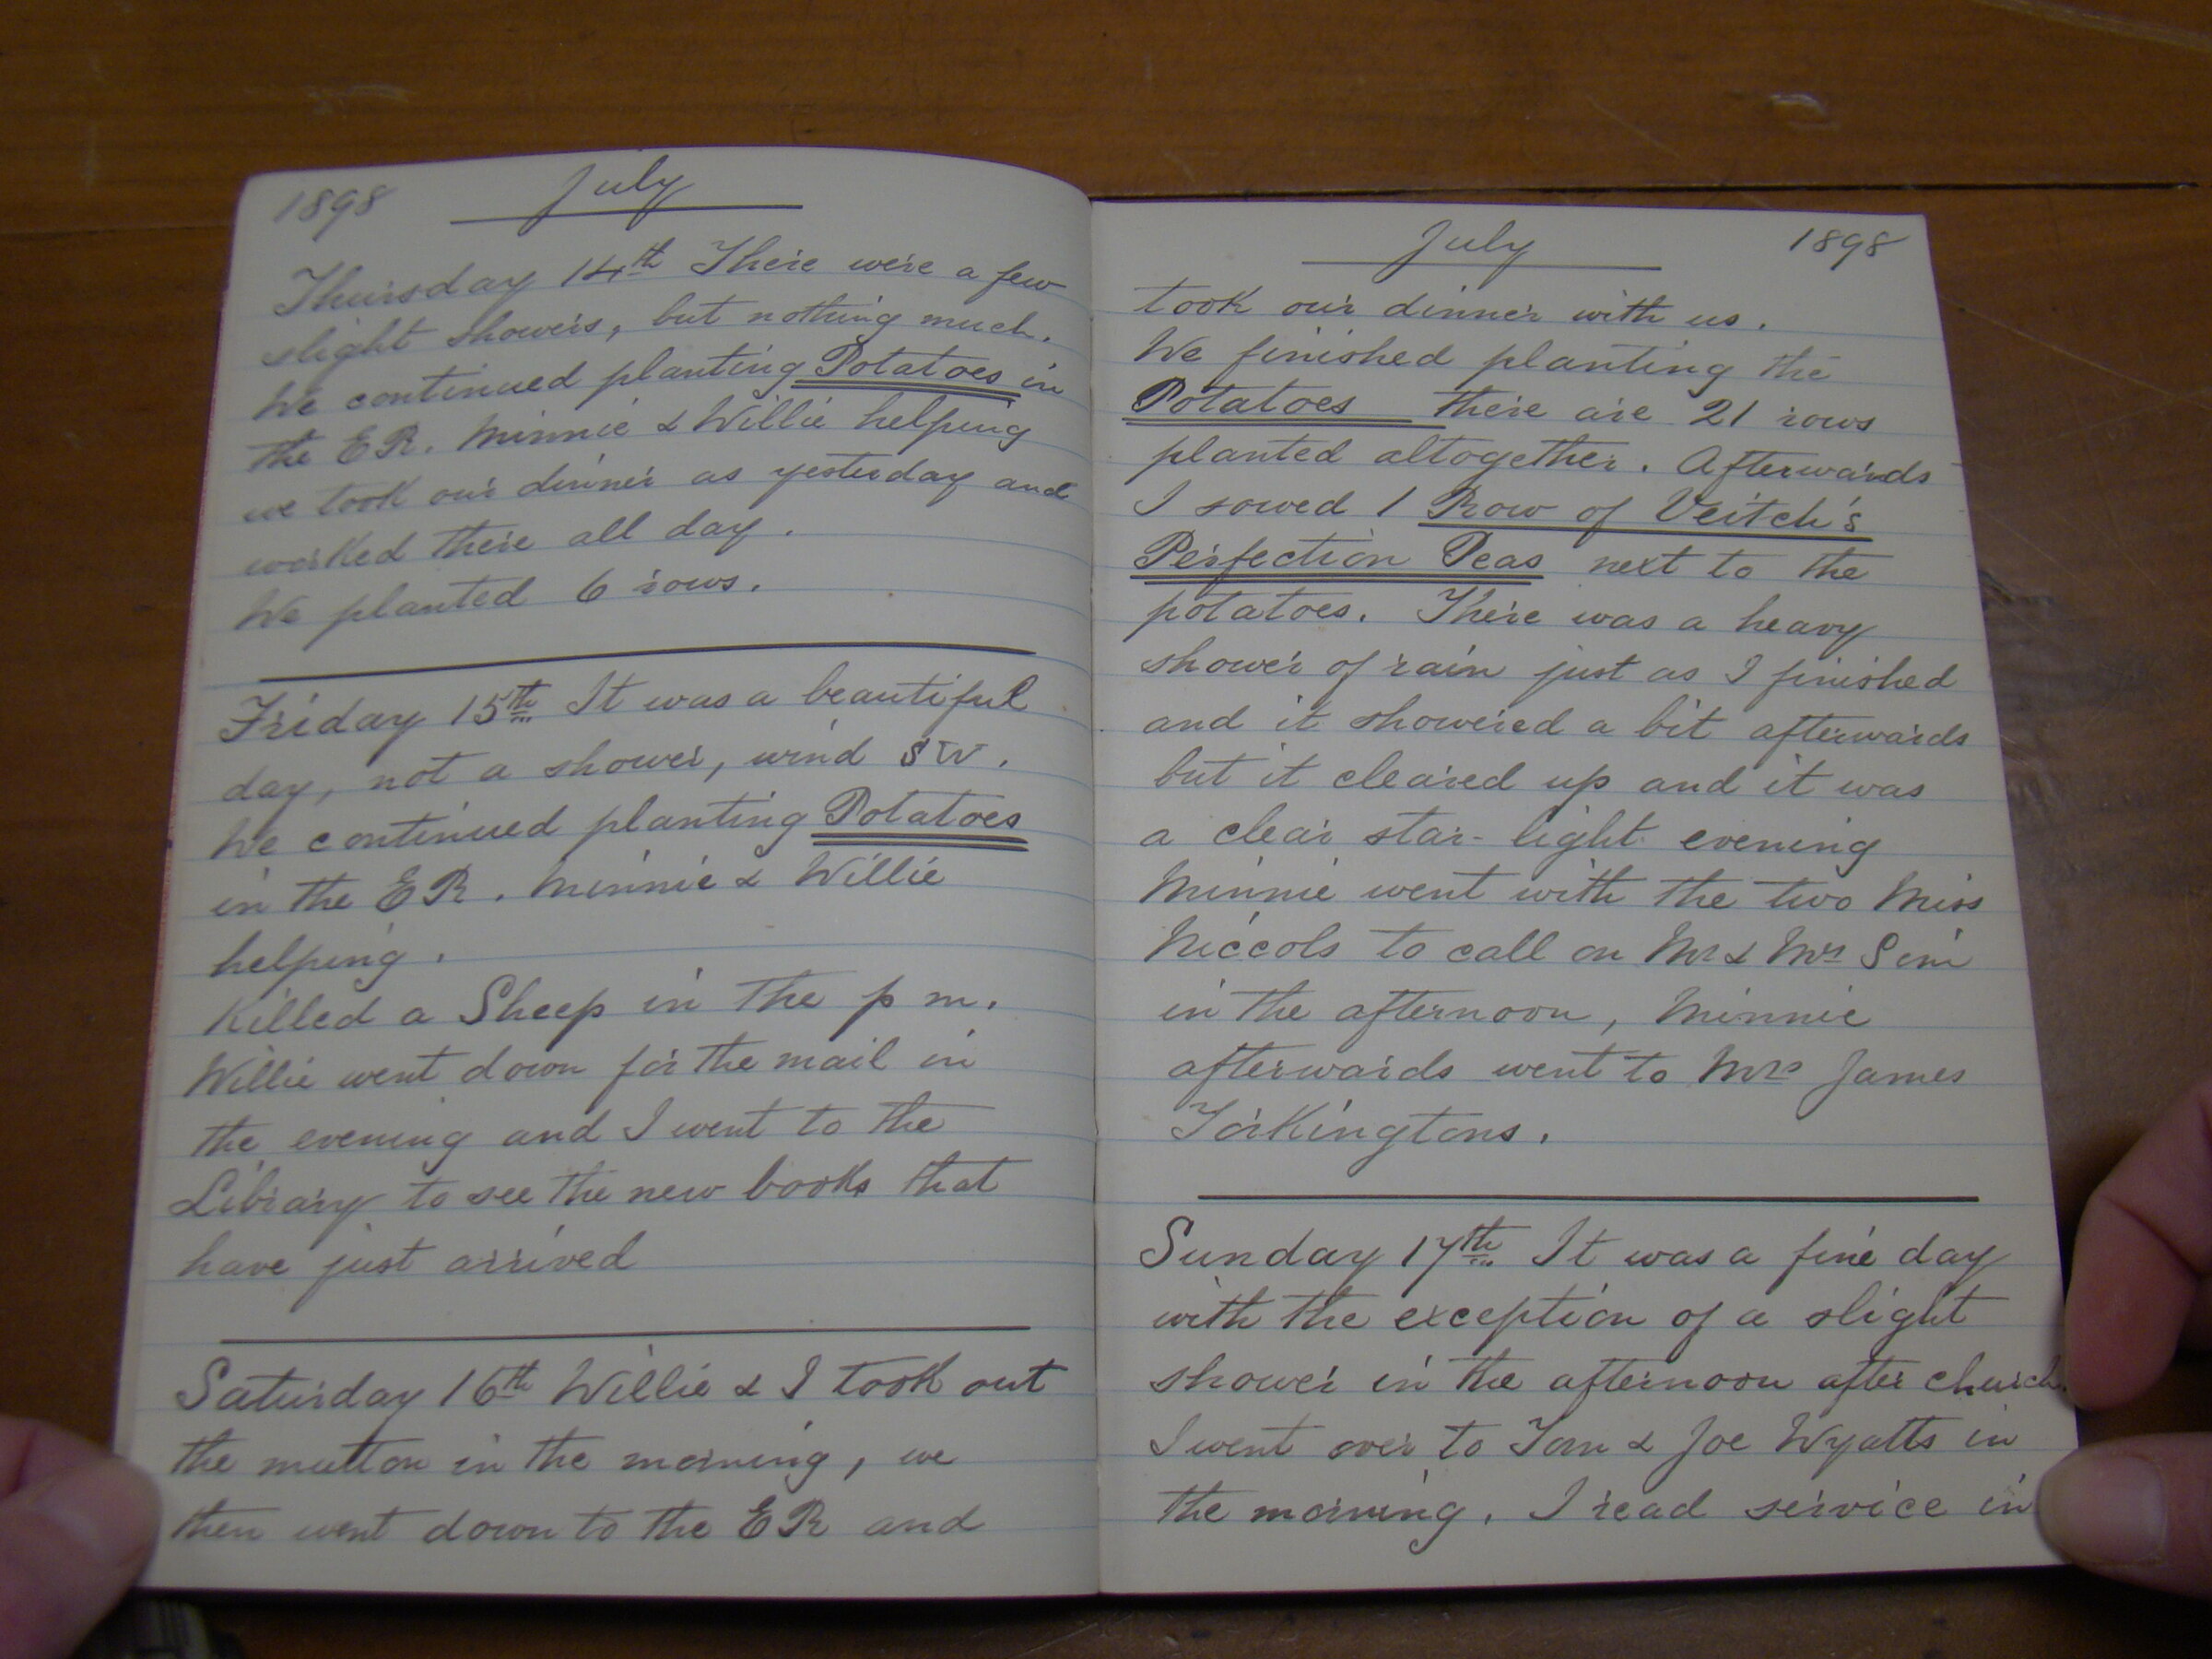 1898 July
Thursday 14th There were a few
slight showers, but nothing much.
We continued planting Potatoes in
the ER. Minnie & Willie helping
we took our dinner as yesterday and
worked there all day.
We planted 6 rows.
Friday 15th It was a beautiful
day, not a shower, wind SW.
We continued planting Potatoes
in the ER. Minnie & Willie
helping.
Killed a Sheep in the p m.
Willie went down for the mail in
the evening and I went to the
Library to see the new books that
have just arrived
Saturday 16th Willie & I took out
the mutton in the morning, we
then went down to the ER and
July 1898
took our dinner with us.
We finished planting the
Potatoes there are 21 rows
planted altogether. Afterwards
I sowed 1 Row of Veitch's
Perfection Peas next to the
potatoes. There was a heavy
shower of rain just as I finished
and it showered a bit afterwards
but it cleared up and it was
a clear star-light evening
Minnie went with the two Miss
Niccols to call on Mr & Mrs Sim
in the afternoon, Minnie
afterwards went to Mrs James
Torkingtons.
Sunday 17th It was a fine day
with the exception of a slight
shower in the afternoon after church.
I went over to Tom & Joe Wyatts in
the morning. I read service in